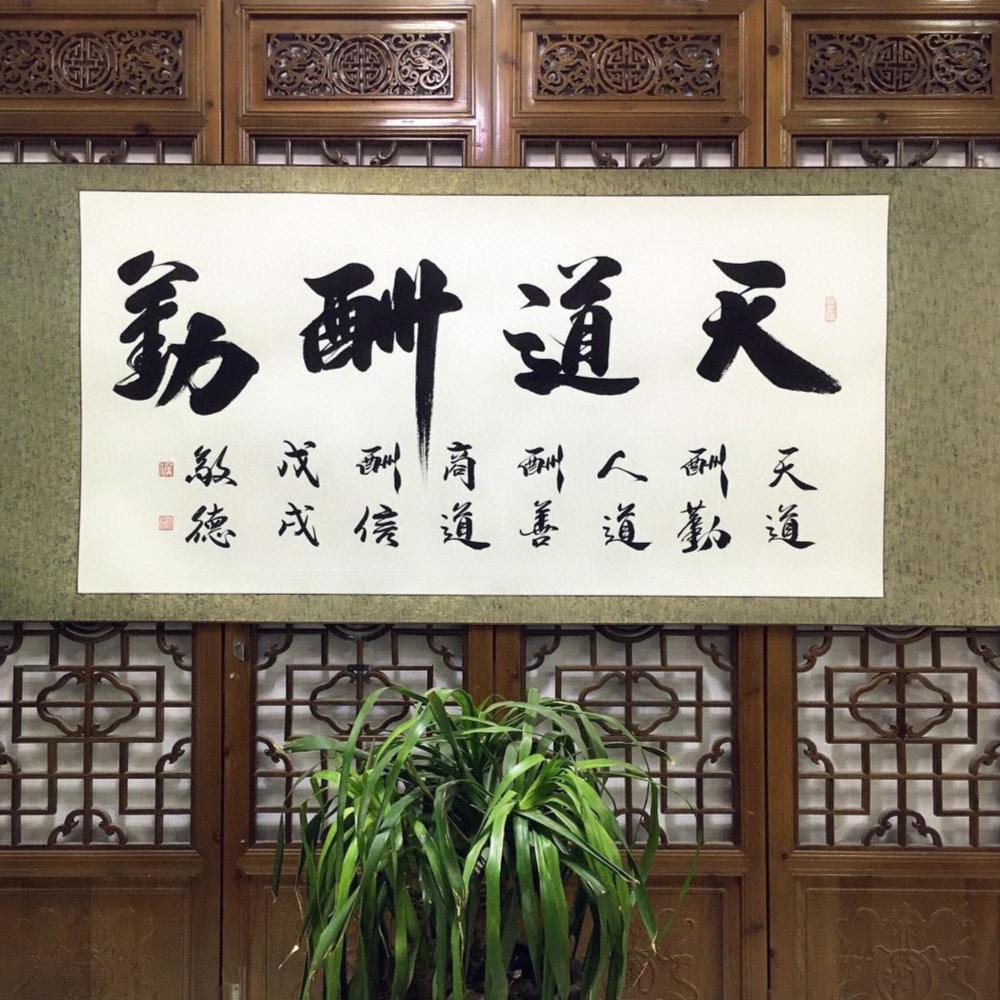 天道酬勤
天道
酬勤
人道
酬善
商道
酬信
戊戌
敬德